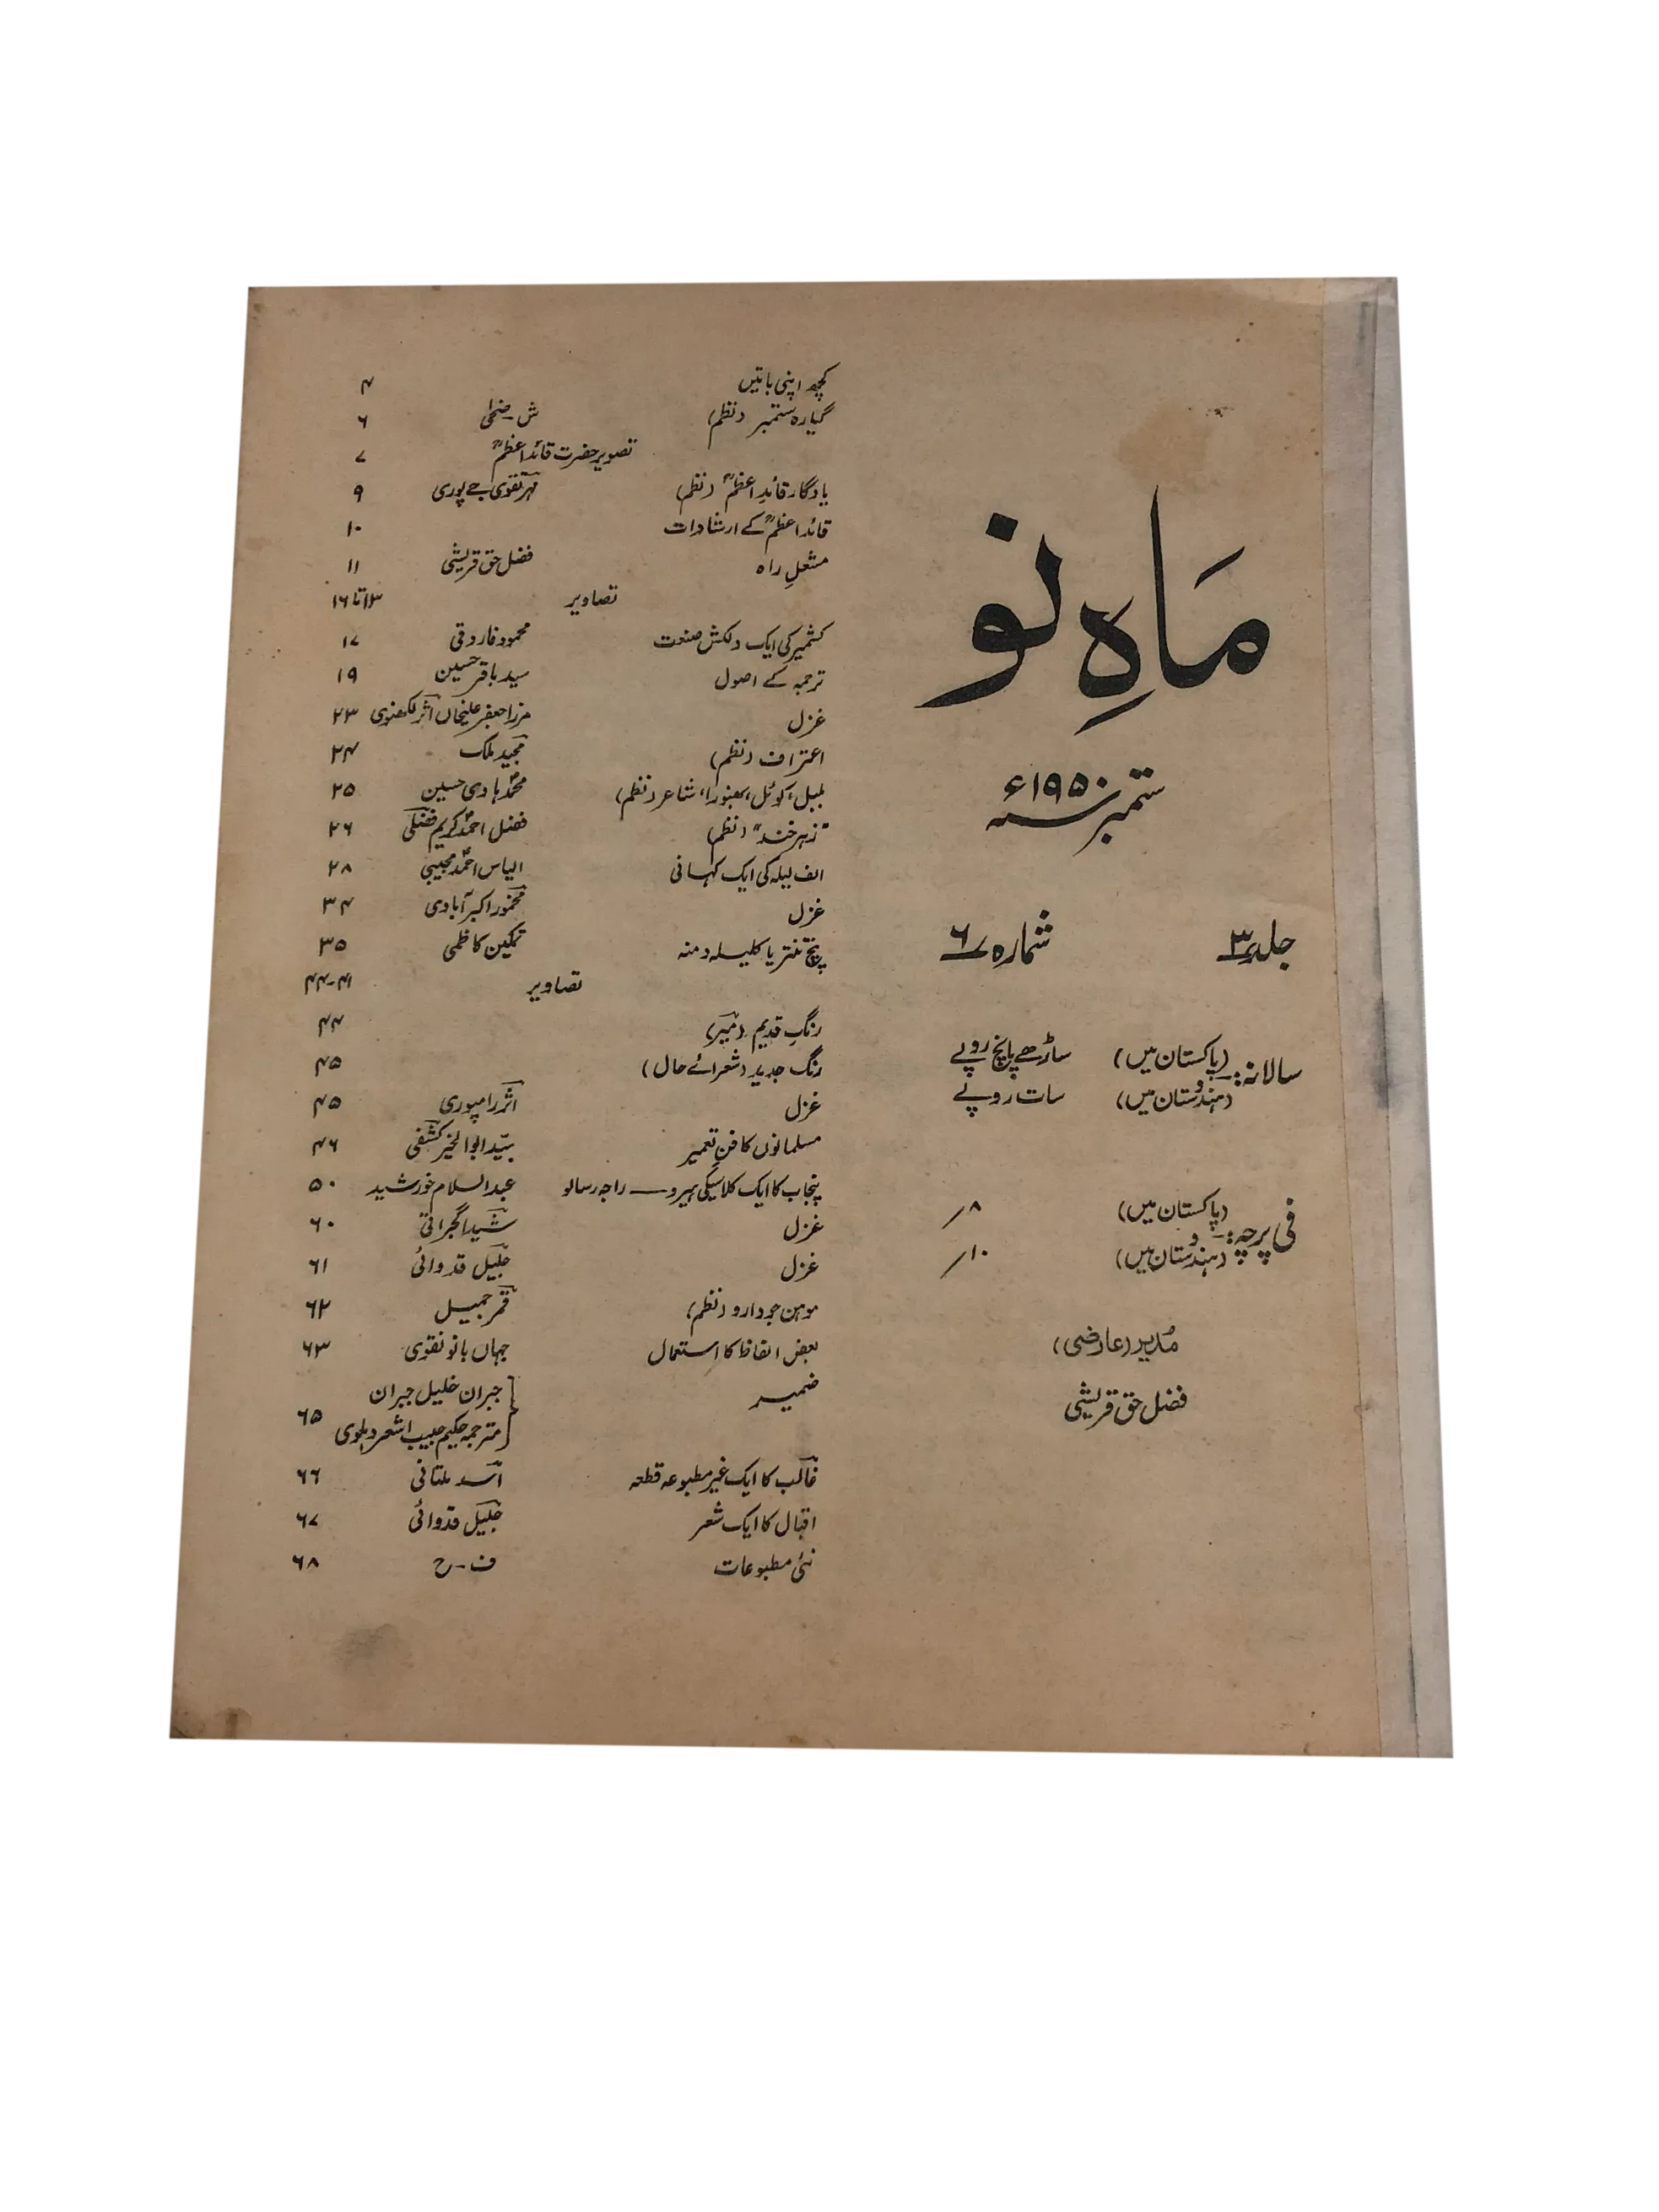 ماہِ نو
ستمبر سنہ ۱۹۵۰ء
جلد ۳ شمارہ ۶
سالانہ:۔ (پاکستان میں) ساڑھے پانچ روپے
(ہندوستان میں) سات روپے
فی پرچہ:۔ (پاکستان میں) ۸/
(ہندوستان میں) ۱۰/
مدیر (عارضی)
فضل حق قریشی
کچھ اپنی باتیں ۴
گیارہ ستمبر (نظم) ش۔ ضحیٰ ۶
تصویر حضرت قائد اعظمؒ ۷
یادگار قائدِ اعظمؒ (نظم) مہر تقوی جے پوری ۹
قائد اعظمؒ کے ارشادات ۱۰
مشعلِ راہ فضل حق قریشی ۱۱
تصاویر ۱۳ تا ۱۶
کشمیر کی ایک دلکش صنعت محمود فاروقی ۱۷
ترجمہ کے اصول سید باقر حسین ۱۹
غزل مرزا جعفر علیخاں اثر لکھنوی ۲۳
اعتراف (نظم) مجید ملک ۲۴
بلبل، کوئل، بھنورا، شاعر (نظم) محمد ہادی حسین ۲۵
"زہر خند" (نظم) فضل احمد کریم فضلی ۲۶
الف لیلہ کی ایک کہانی الیاس احمد مجیبی ۲۸
غزل مخمور اکبرآبادی ۳۴
پنچ تنتر یا کلیلہ دمنہ تمکین کاظمی ۳۵
تصاویر ۴۱-۴۴
رنگِ قدیم (میر) ۴۴
رنگ جدید (شعرائے حال) ۴۵
غزل اثر رامپوری ۴۵
مسلمانوں کا فنِ تعمیر سیّد ابوالخیر کشفی ۴۶
پنجاب کا ایک کلاسیکی ہیرو — راجہ رسالو عبدالسلام خورشید ۵۰
غزل شیدا گجراتی ۶۰
غزل جلیل قدوائی ۶۱
موہن جودارو (نظم) قمر جمیل ۶۲
بعض الفاظ کا استعمال جہاں بانو نقوی ۶۳
ضمیر جبران خلیل جبران
مترجمہ حکیم حبیب اشعر دہلوی ۶۵
غالب کا ایک غیر مطبوعہ قطعہ اسد ملتانی ۶۶
اقبال کا ایک شعر جلیل قدوائی ۶۷
نئی مطبوعات ف۔ ح ۶۸